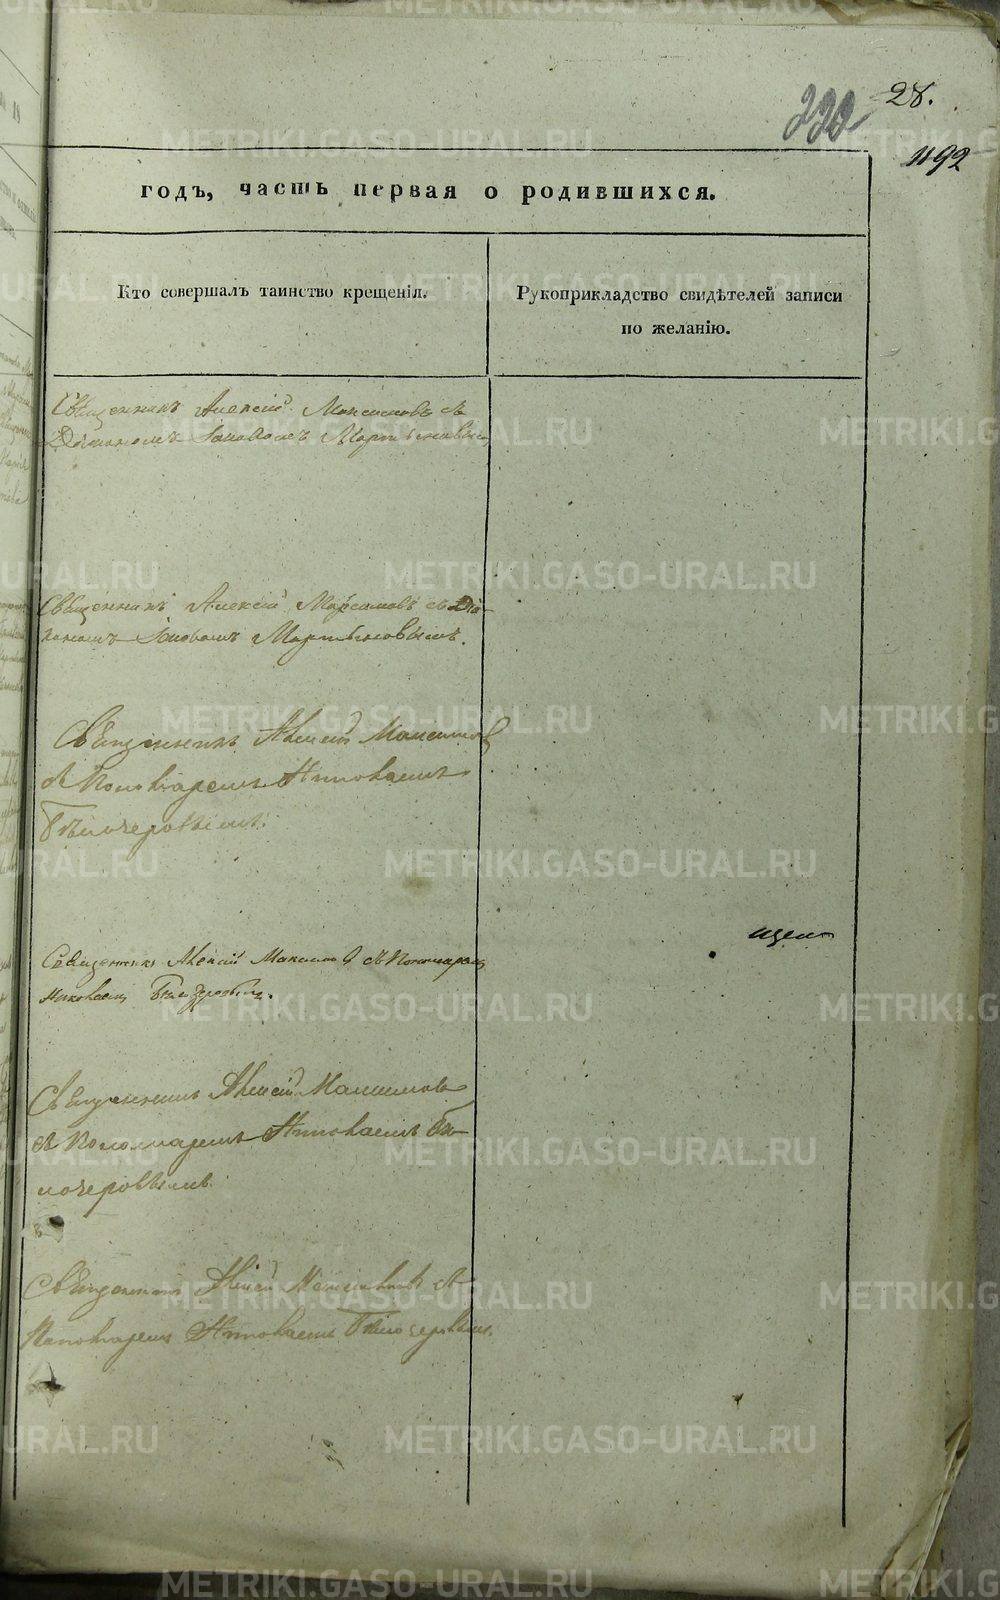 28.
1192
годъ, часть первая о родившихся.
Кто совершалъ таинство крещенія.
Рукоприкладство свидѣтелей записи
по желанію.
Священникъ Алексій Максимовъ съ
Діакономъ Іаковомъ Мартыновымъ
Священникъ Алексій Максимовъ съ Діа-
кономъ Іаковомъ Мартыновымъ.
Священникъ Алексій Максимовъ
съ Пономаремъ Николаемъ
Бѣлозеровымъ.
Священникъ Алексій Максимовъ съ Пономаремъ
Николаемъ Белозеровымъ.
Священникъ Алексій Максимовъ
съ Пономаремъ Николаемъ Бѣ-
лозеровымъ.
Священникъ Алексій Максимовъ съ
Пономаремъ Николаемъ Бѣлозеровымъ.
METRIKI.GASO-URAL.RU